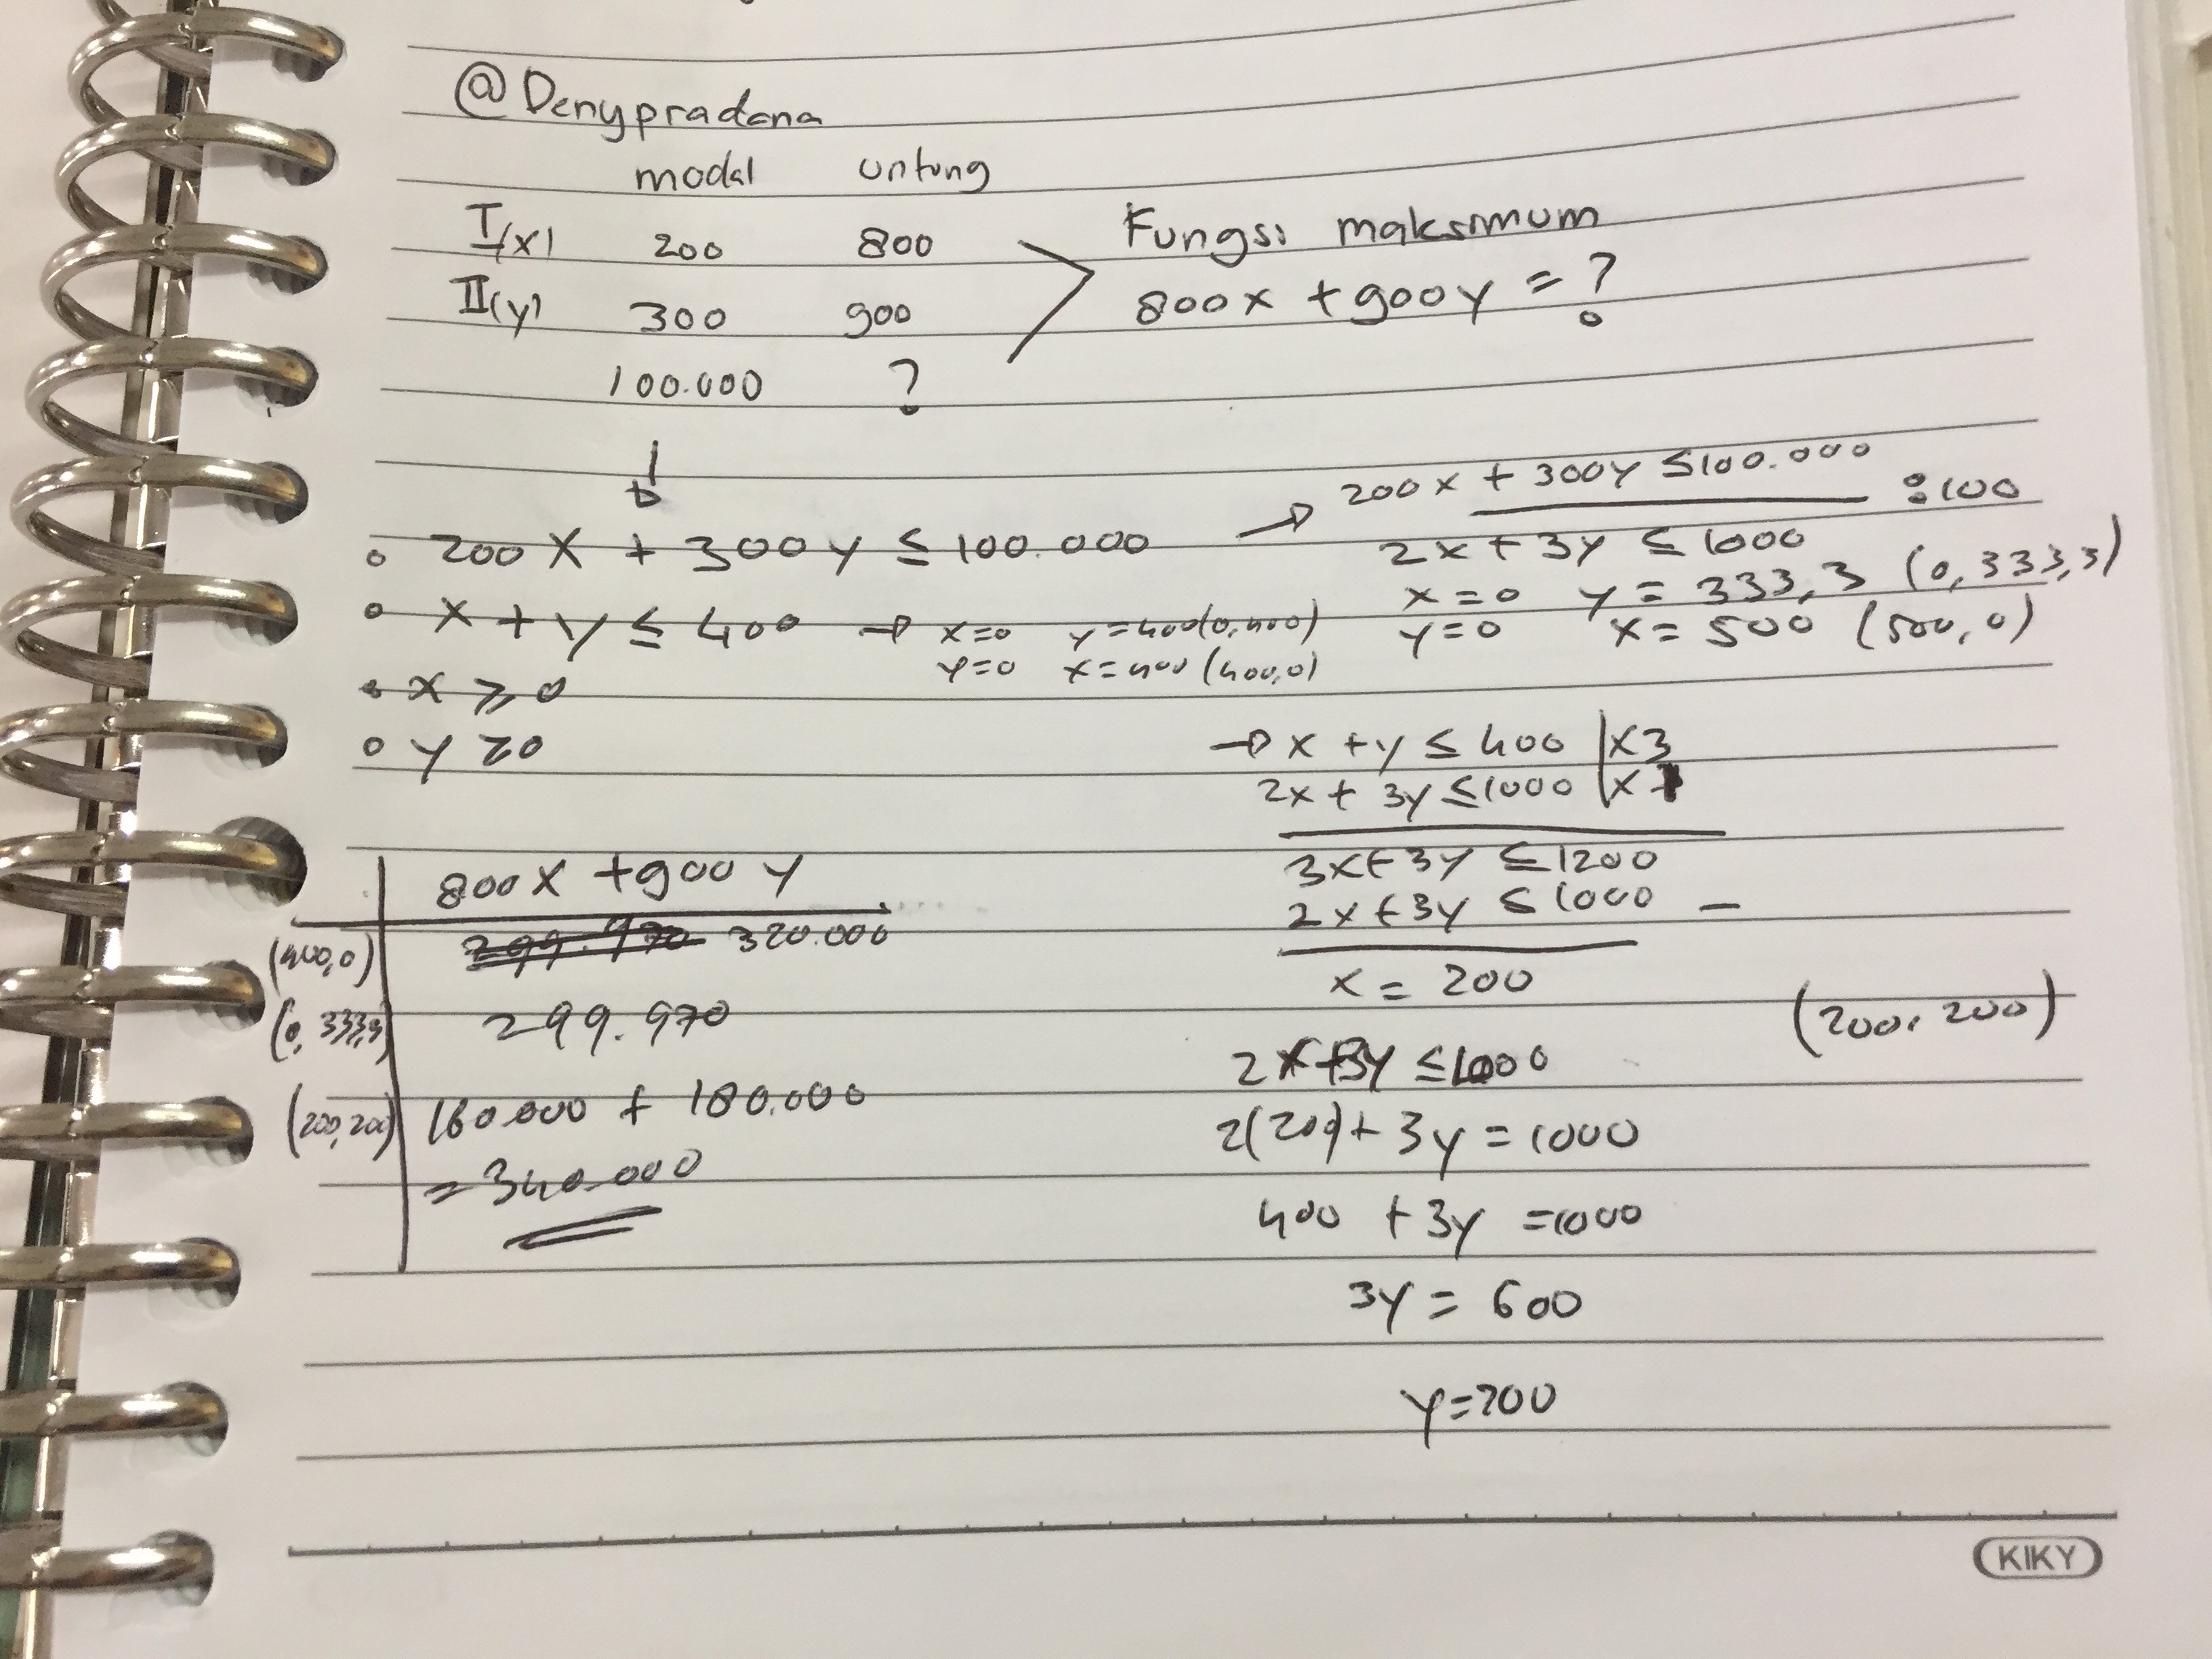 @Denypradana
modal untung
I(x) 200 800
II(y) 300 900
100.000 ?
Fungsi maksimum
800x + 900y = ?
• 200x + 300y ≤ 100.000
• x + y ≤ 400 → x=0 y=400 (0,400)
y=0 x=400 (400,0)
• x ≥ 0
• y ≥ 0
→ 200x + 300y ≤ 100.000 :100
2x + 3y ≤ 1000
x=0 y = 333,3 (0,333,3)
y=0 x = 500 (500,0)
→ x + y ≤ 400 | x3
2x + 3y ≤ 1000 | x1
3x + 3y ≤ 1200
2x + 3y ≤ 1000 –
x = 200
(200, 200)
2x + 3y ≤ 1000
2(200) + 3y = 1000
400 + 3y = 1000
3y = 600
y = 200
800x + 900y
(400,0) 299.970 320.000
(0, 333,3) 299.970
(200,200) 160.000 + 180.000
= 340.000
KIKY